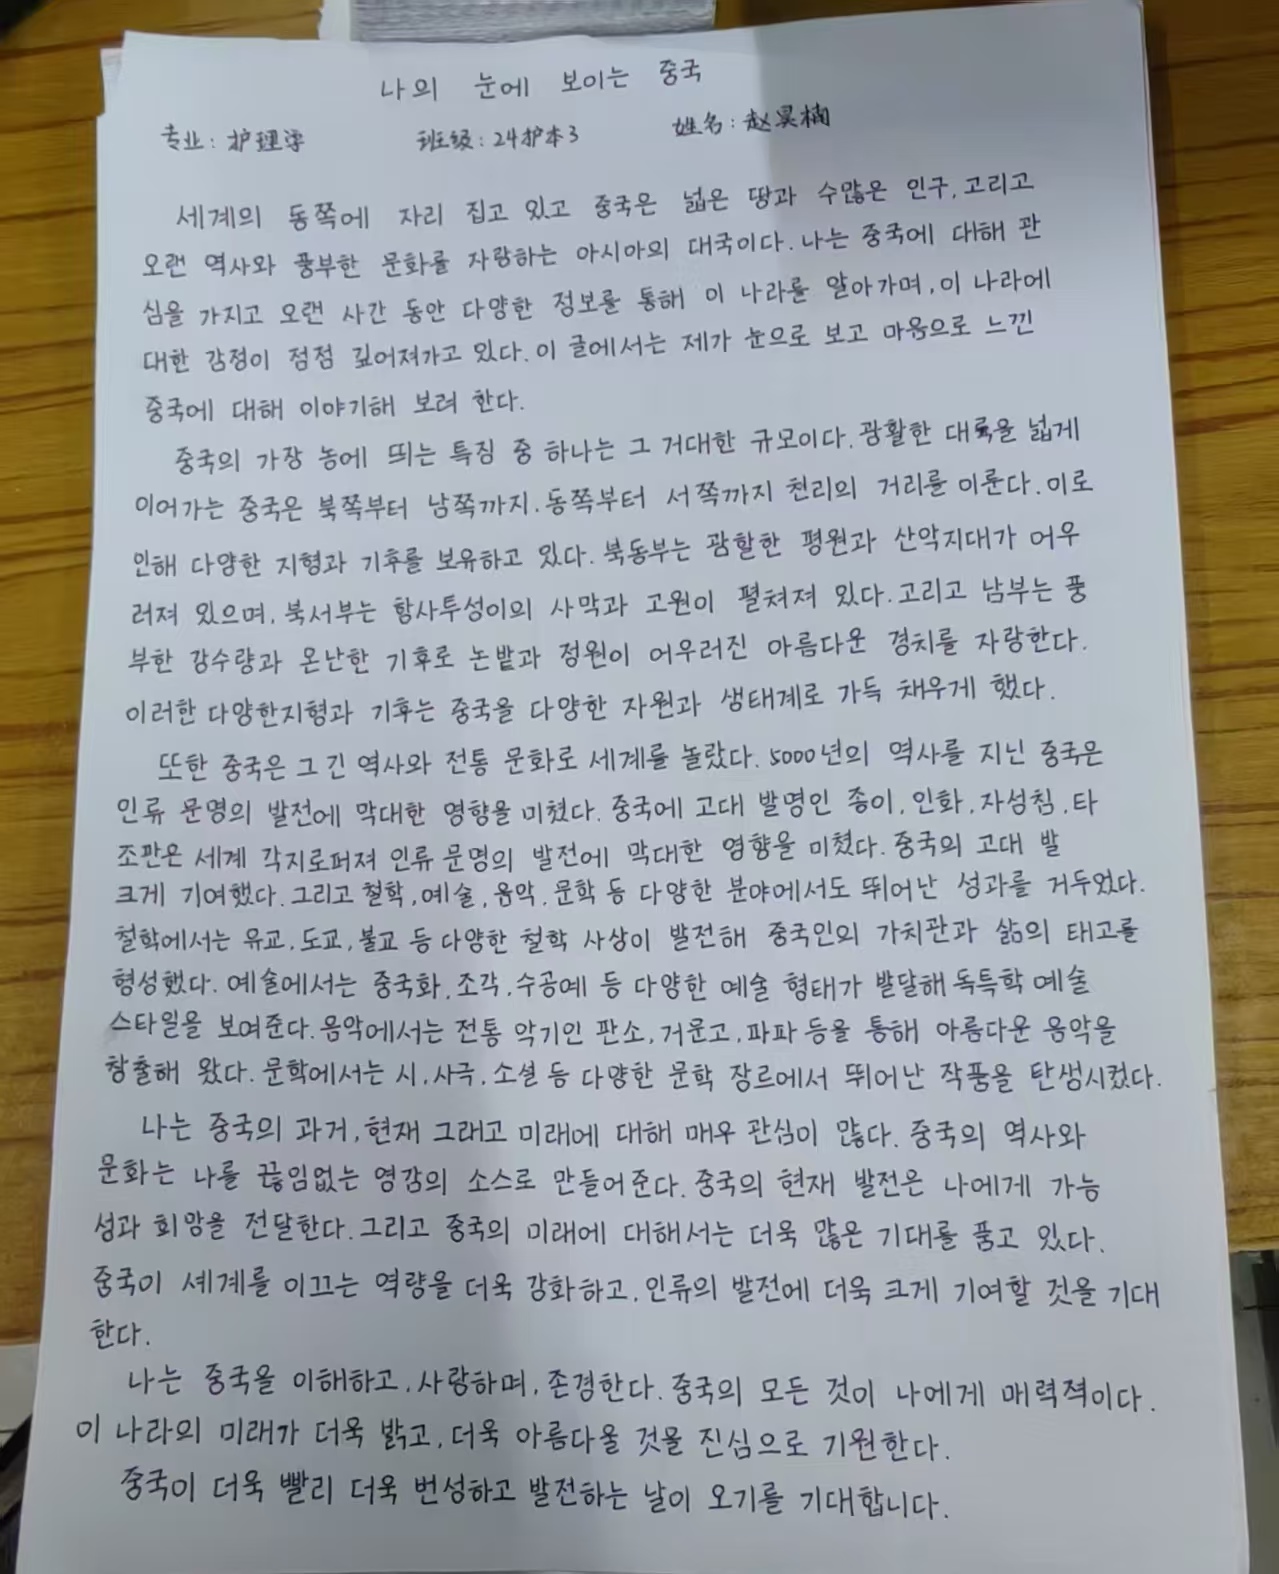 나의 눈에 보이는 중국
专业: 护理学 班级: 24护本3 姓名: 赵昊楠
세계의 동쪽에 자리 집고 있고 중국은 넓은 땅과 수많은 인구, 고리고
오랜 역사와 풍부한 문화를 자랑하는 아시아의 대국이다. 나는 중국에 대해 관
심을 가지고 오랜 사간 동안 다양한 정보를 통해 이 나라를 알아가며, 이 나라에
대한 감정이 점점 깊어져가고 있다. 이 글에서는 제가 눈으로 보고 마음으로 느낀
중국에 대해 이야기해 보려 한다.
중국의 가장 눙에 띄는 특징 중 하나는 그 거대한 규모이다. 광활한 대륙을 넓게
이어가는 중국은 북쪽부터 남쪽까지. 동쪽부터 서쪽까지 천리의 거리를 이룬다. 이로
인해 다양한 지형과 기후를 보유하고 있다. 북동부는 광할한 평원과 산악지대가 어우
러져 있으며, 북서부는 항사투성이의 사막과 고원이 펼쳐져 있다. 고리고 남부는 풍
부한 강수량과 온난한 기후로 논밭과 정원이 어우러진 아름다운 경치를 자랑한다.
이러한 다양한지형과 기후는 중국을 다양한 자원과 생태계로 가득 채우게 했다.
또한 중국은 그 긴 역사와 전통 문화로 세계를 놀랐다. 5000년의 역사를 지닌 중국은
인류 문명의 발전에 막대한 영향을 미쳤다. 중국에 고대 발명인 종이, 인화, 자성침, 타
조판은 세계 각지로퍼져 인류 문명의 발전에 막대한 영향을 미쳤다. 중국의 고대 발
크게 기여했다. 그리고 철학, 예술, 음악, 문학 등 다양한 분야에서도 뛰어난 성과를 거두었다.
철학에서는 유교, 도교, 불교 등 다양한 철학 사상이 발전해 중국인의 가치관과 삶의 태고를
형성했다. 예술에서는 중국화, 조각, 수공예 등 다양한 예술 형태가 발달해 독특학 예술
스타일을 보여준다. 음악에서는 전통 악기인 판소, 거문고, 파파 등을 통해 아름다운 음악을
창출해 왔다. 문학에서는 시, 사극, 소설 등 다양한 문학 장르에서 뛰어난 작품을 탄생시켰다.
나는 중국의 과거, 현재 그래고 미래에 대해 매우 관심이 많다. 중국의 역사와
문화는 나를 끊임없는 영감의 소스로 만들어준다. 중국의 현재 발전은 나에게 가능
성과 희망을 전달한다. 그리고 중국의 미래에 대해서는 더욱 많은 기대를 품고 있다.
중국이 세계를 이끄는 역량을 더욱 강화하고, 인류의 발전에 더욱 크게 기여할 것을 기대
한다.
나는 중국을 이해하고, 사랑하며, 존경한다. 중국의 모든 것이 나에게 매력적이다.
이 나라의 미래가 더욱 밝고, 더욱 아름다울 것을 진심으로 기원한다.
중국이 더욱 빨리 더욱 번성하고 발전하는 날이 오기를 기대합니다.